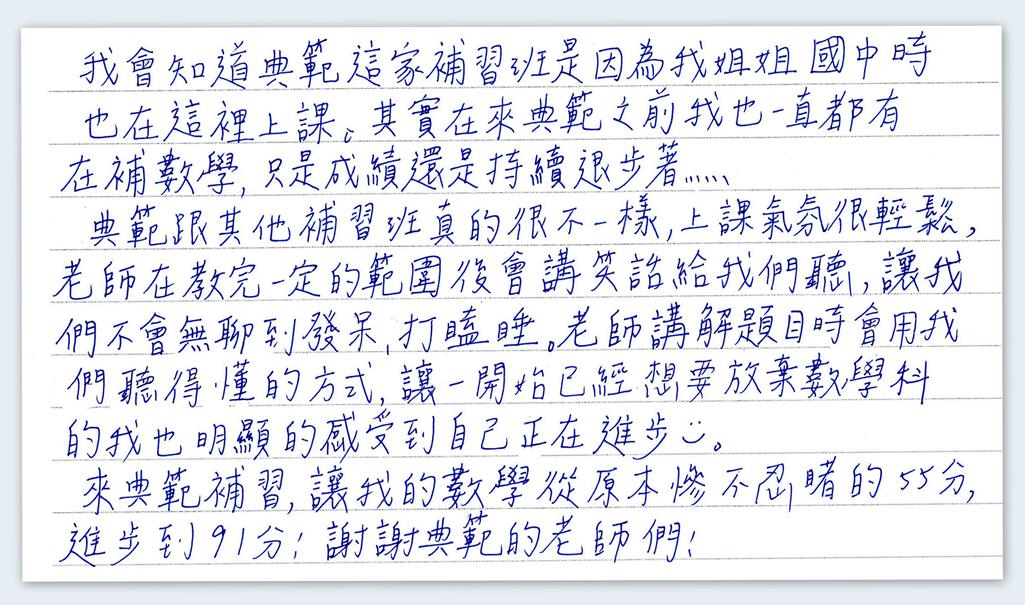 我會知道典範這家補習班是因為我姐姐國中時
也在這裡上課。其實在來典範之前我也一直都有
在補數學,只是成績還是持續退步著......
典範跟其他補習班真的很不一樣,上課氣氛很輕鬆,
老師在教完一定的範圍後會講笑話給我們聽,讓我
們不會無聊到發呆,打瞌睡。老師講解題目時會用我
們聽得懂的方式,讓一開始已經想要放棄數學科
的我也明顯的感受到自己正在進步:)。
來典範補習,讓我的數學從原本慘不忍睹的55分,
進步到91分!謝謝典範的老師們!